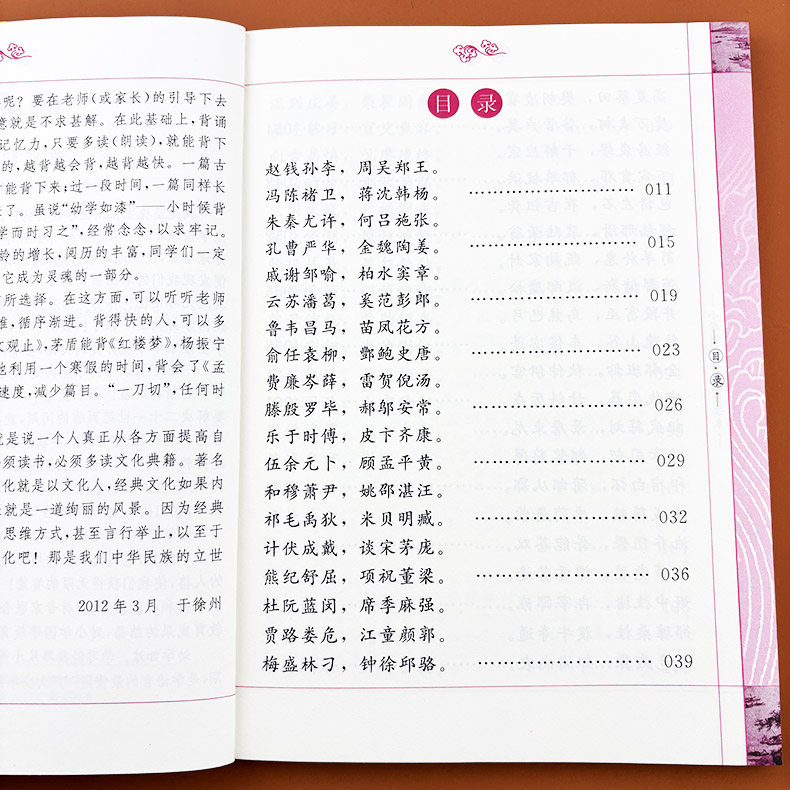 呢？要在老师(或家长)的引导下去
意就是不求甚解。在此基础上，背诵
记忆力，只要多读(朗读)，就能背下
的，越背越会背，越背越快。一篇古
能背下来；过一段时间，一篇同样长
来了。虽说“幼学如漆”——小时候背
学而时习之”，经常念念，以求牢记。
龄的增长，阅历的丰富，同学们一定
它成为灵魂的一部分。
所选择。在这方面，可以听听老师
难，循序渐进。背得快的人，可以多
文观止》，茅盾能背《红楼梦》，杨振宁
他利用一个寒假的时间，背会了《孟
速度，减少篇目。“一刀切”，任何时
就是说一个人真正从各方面提高自
必须读书，必须多读文化典籍。著名
化就是以文化人，经典文化如果内
就是一道绚丽的风景。因为经典
思维方式，甚至言行举止，以至于
化吧！那是我们中华民族的立世
2012年3月 于徐州
目录
赵钱孙李，周吴郑王。
冯陈褚卫，蒋沈韩杨。 …………………… 011
朱秦尤许，何吕施张。
孔曹严华，金魏陶姜。 …………………… 015
戚谢邹喻，柏水窦章。
云苏潘葛，奚范彭郎。 …………………… 019
鲁韦昌马，苗凤花方。
俞任袁柳，酆鲍史唐。 …………………… 023
费廉岑薛，雷贺倪汤。
滕殷罗毕，郝邬安常。 …………………… 026
乐于时傅，皮卞齐康。
伍余元卜，顾孟平黄。 …………………… 029
和穆萧尹，姚邵湛汪。
祁毛禹狄，米贝明臧。 …………………… 032
计伏成戴，谈宋茅庞。
熊纪舒屈，项祝董梁。 …………………… 036
杜阮蓝闵，席季麻强。
贾路娄危，江童颜郭。
梅盛林刁，钟徐邱骆。 …………………… 039
目·录